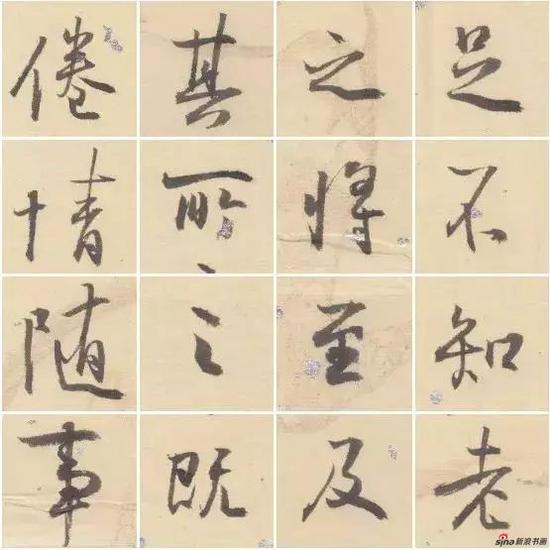 足不知老
之将至及
其所之既
倦情随事
sina新浪书画